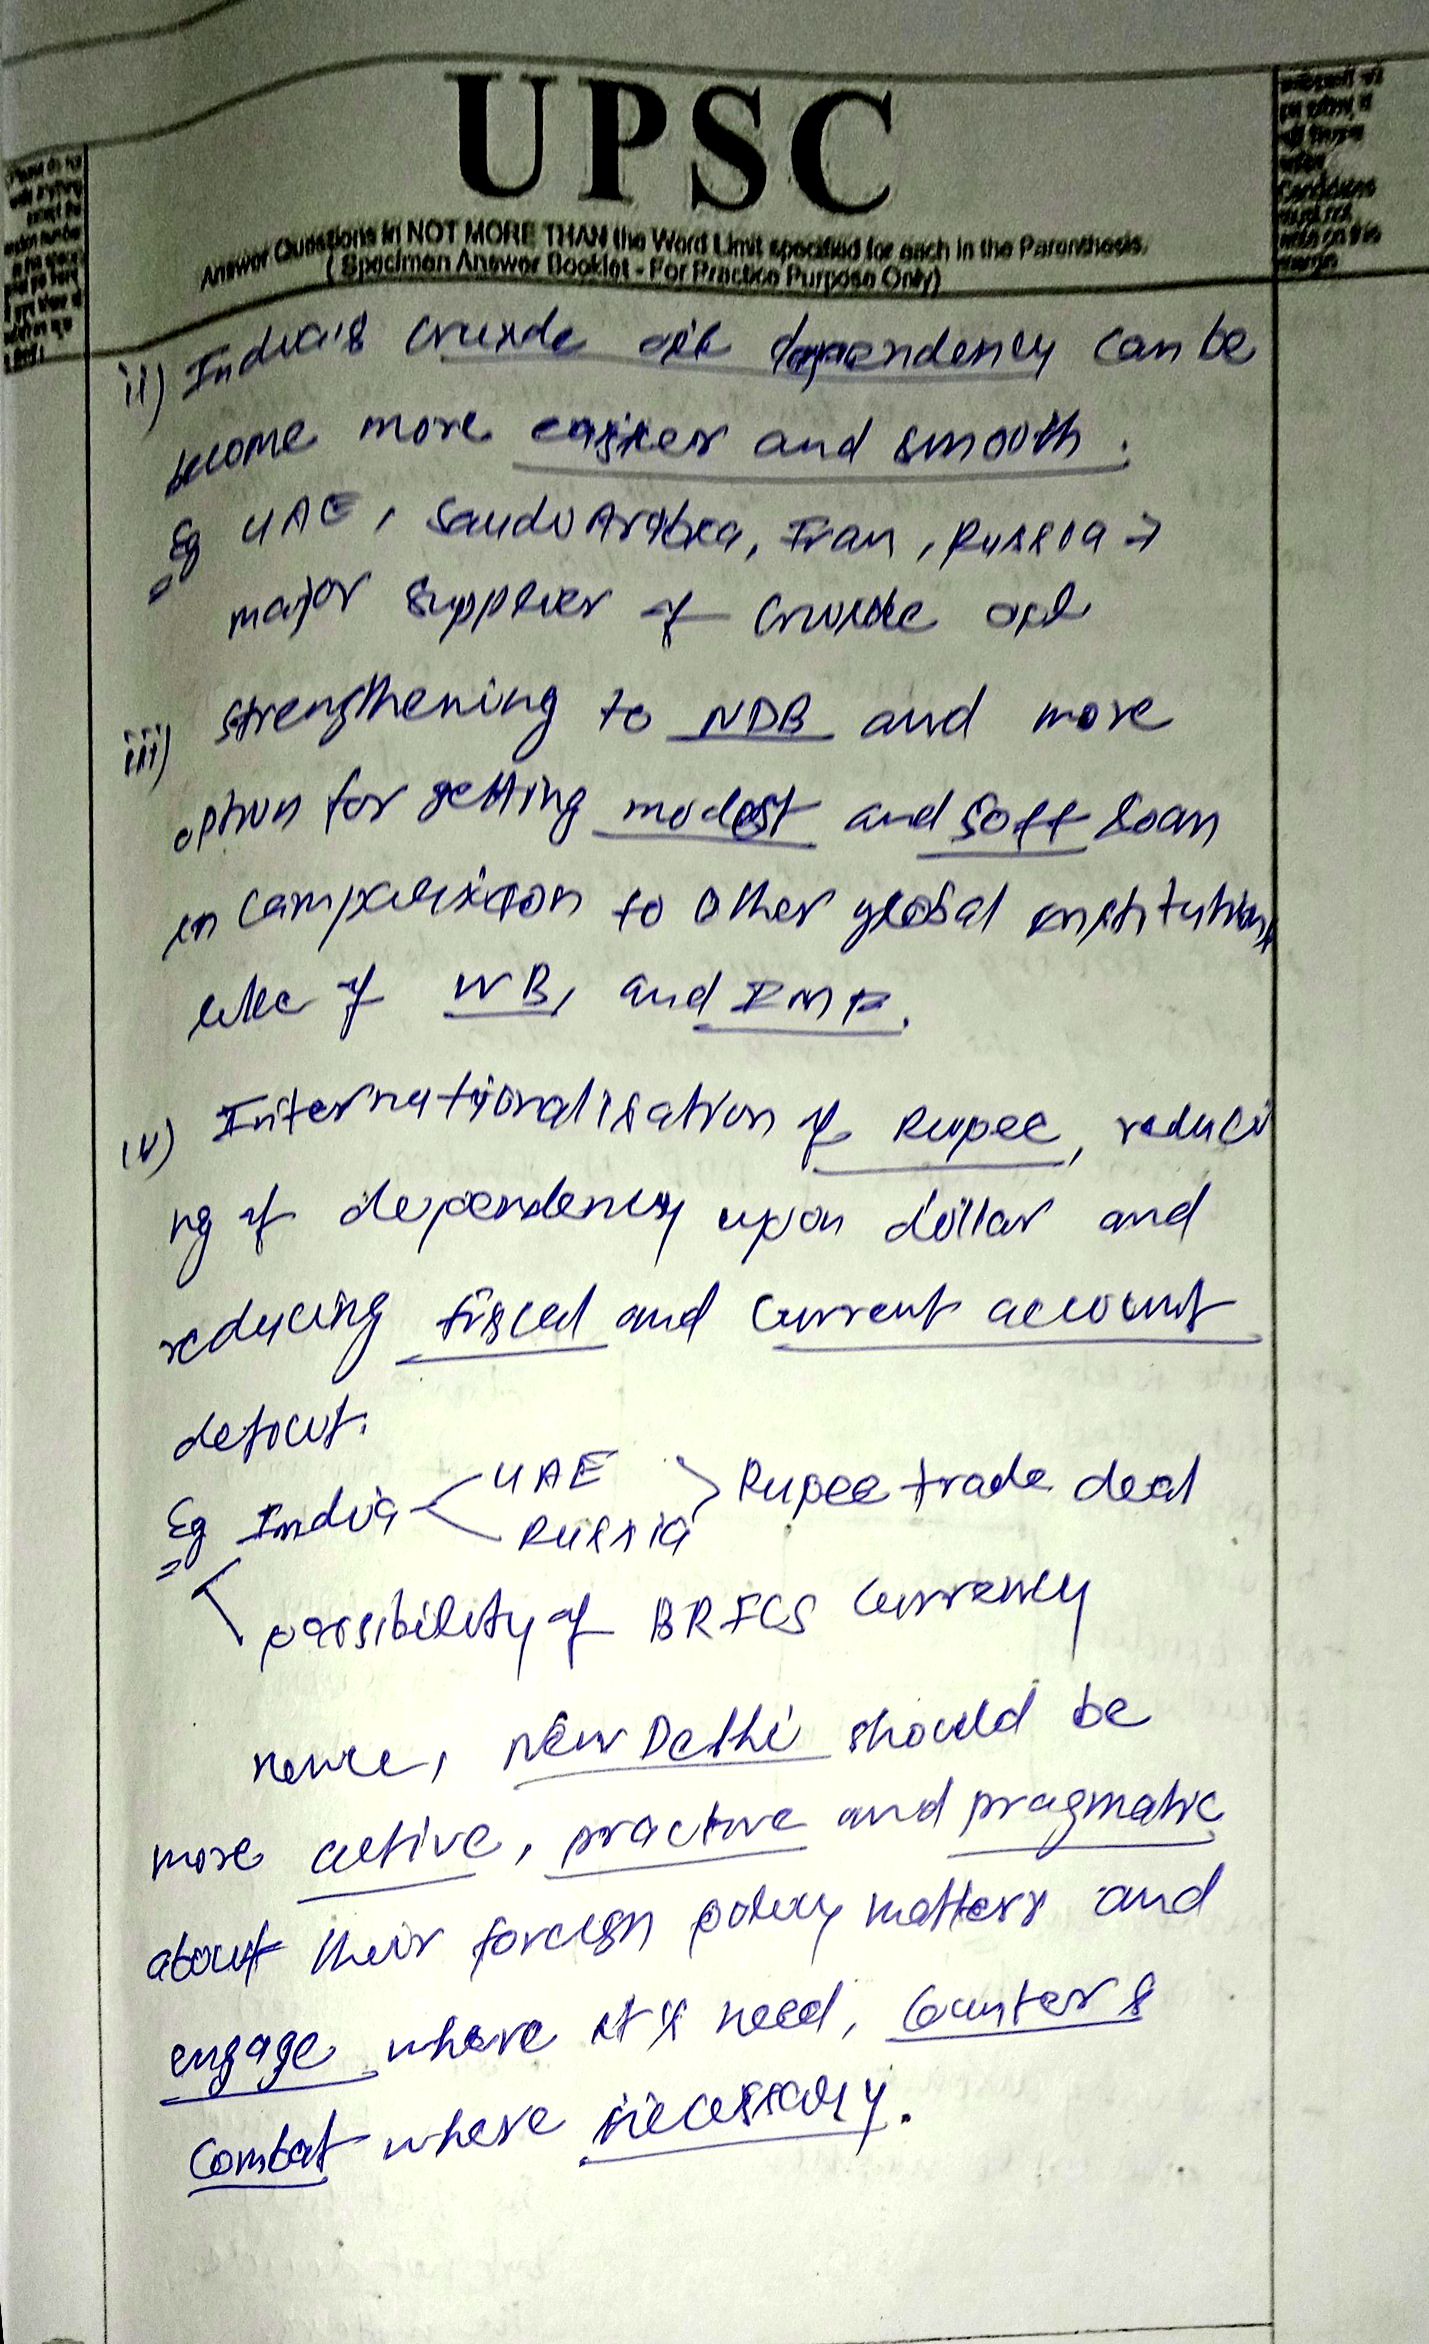 UPSC
Answer Questions in NOT MORE THAN the Word Limit specified for each in the Parenthesis.
( Specimen Answer Booklet - For Practice Purpose Only)
Please do not
write anything
except the
question number
in the space
Candidates
must not
write on this
margin
ii) India's crude oil dependency can be
become more easier and smooth.
Eg UAE, Saudi Arabia, Iran, Russia →
major supplier of crude oil
iii) strengthening to NDB and more
option for getting modest and soft loan
in comparision to other global institutions
like of WB, and IMF.
iv) Internationalisation of Rupee, reduci
ng of dependency upon dollar and
reducing fiscal and current account
deficit.
Eg India < UAE
Russia > Rupee trade deal
possibility of BRICS currency
hence, New Delhi should be
more active, proactive and pragmatic
about their foreign policy matters and
engage where it's need, counter &
combat where necessary.